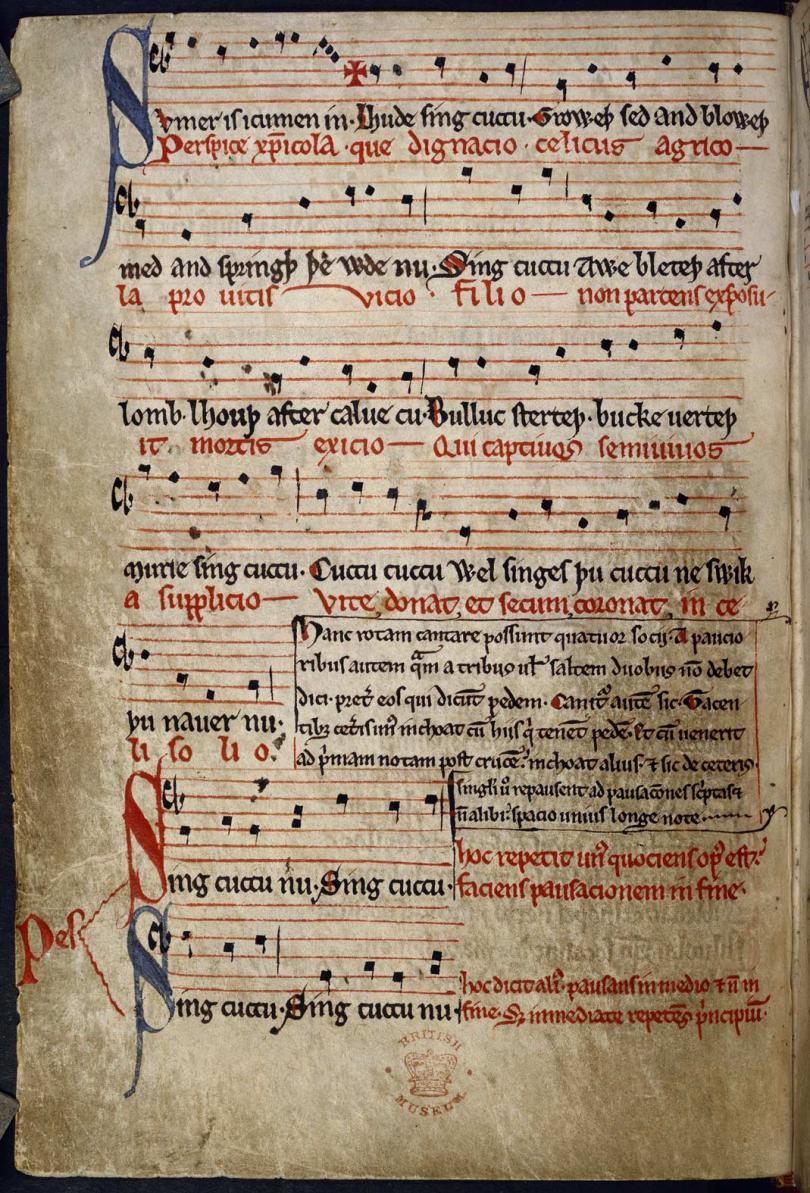 Svmer is icumen in. Lhude sing cuccu. Groweþ sed and bloweþ
Perspice xp̄icola . que dignacio . celicus agrico
med and springþ þe wde nu. Sing cuccu Awe bleteþ after
la pro uitis vicio . filio non parcens exposu
lomb. lhouþ after calue cu. Bulluc sterteþ. bucke uerteþ
it mortis exicio Qui captiuos semiuiuos
murie sing cuccu. Cuccu cuccu Wel singes þu cuccu ne swik
a supplicio Vite donat, et secum coronat, in ce
þu nauer nu.
li so li o.
Hanc rotam cantare possunt quatuor socij. A paucio
ribus autem qͣm a tribus ul̕ saltem duobus nō debet
dici. pret̕ eos qui dicūt pedem. Canit̕ autē sic. Tacen
tibȝ cet̕is un̕ inchoat cū hijs qͥ tenēt pedē. Et cū uenerit
ad pͥmam notam post crucē. inchoat alius. ⁊ sic de ceteris.
singli u̕ repausent ad pausacōnes scͥptas ⁊
n̄ alibi. spacio unius longe note.
Sing cuccu nu. Sing cuccu.
hoc repetit un̕ quociens opꝰ est.
faciens pausacionem in fine.
Pes
Sing cuccu. Sing cuccu nu
hoc dicit ali̕. pausans in medio ⁊ n̄ in
fine. Sȝ immediate repetēs pͥncipiū.
BRITISH MUSEUM